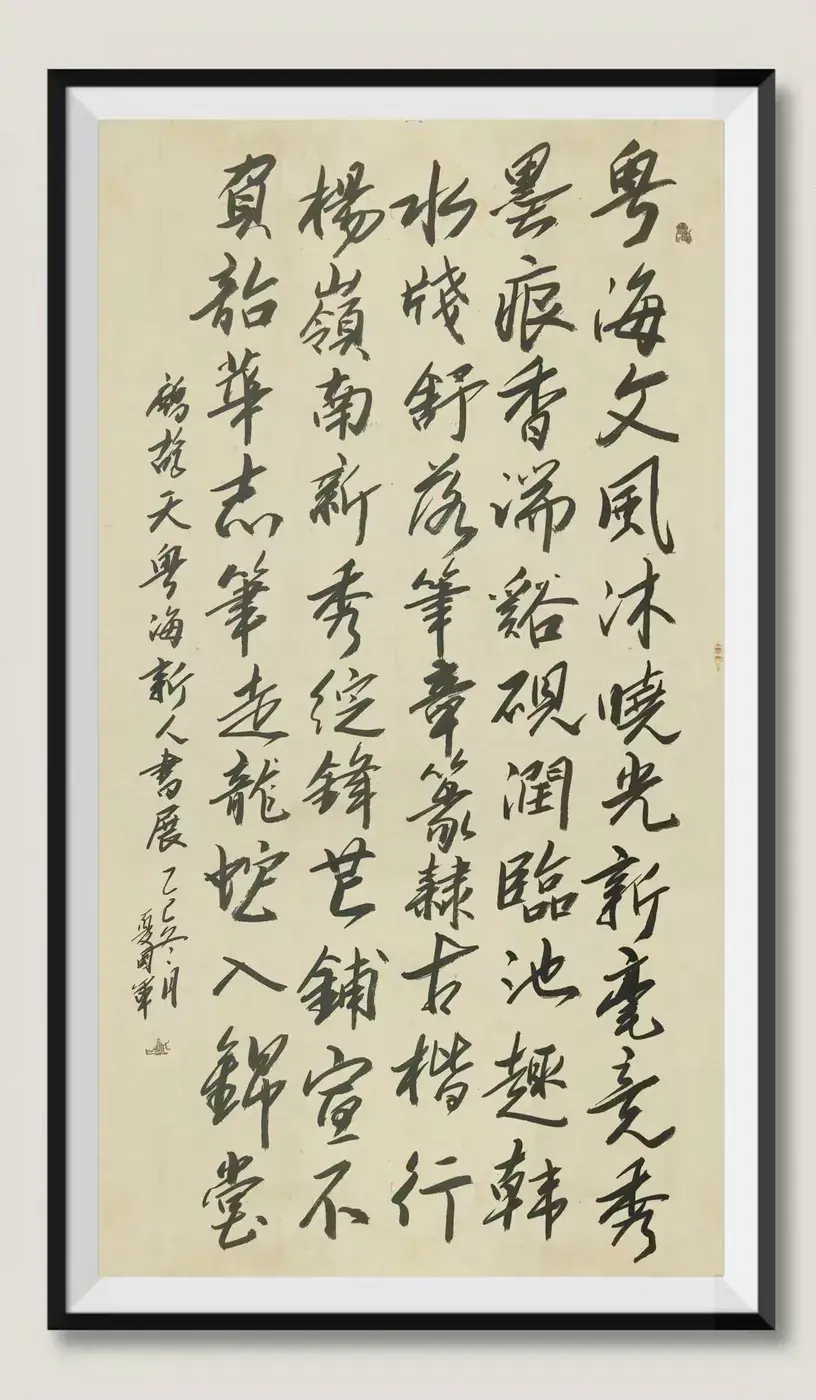 粤海文風沐曉光新毫竞秀
墨痕香湍谿硯潤臨池趣韩
水牋舒落筆章篆隸古楷行
楊嶺南新秀綻鋒芒鋪宣不
負韶華志筆走龍蛇入錦堂
鷓鴣天粤海新人書展乙巳冬月